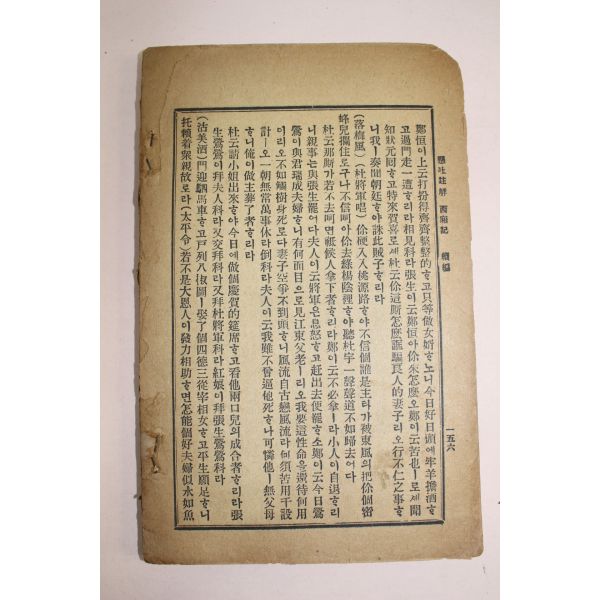 懸吐註解 西廂記 續編
一五六
鄭恒이上云打扮得齊齊整整的ᄒᆞ고只等做女婿ᄒᆞ노니今日好日頭에牢羊擔酒ᄒᆞ
고過門走一遭ᄒᆞ리라相見科라張生이云鄭恒아伱來怎麽오鄭이云苦也ㅣ로셰聞
知狀元回ᄒᆞ고特來賀喜로셰杜云伱這厮怎麽誆騙良人的妻子리오行不仁之事ᄒᆞ
니我ㅣ奏聞朝廷ᄒᆞ야誅此賊子ᄒᆞ리라
(落梅風) (杜將軍唱) 伱硬入入桃源路ᄒᆞ야不信個誰是主타가被東風의把伱個密
蜂兒攔住로구나不信呵아伱去綠楊陰裡ᄒᆞ야聽杜宇一聲聲道不如歸去어다
杜云那厮가若不去呵면祗候人拿下者ᄒᆞ리라鄭이云不必拿ㅣ라小人이自退ᄒᆞ리
니親事는與張生罷어다夫人이云將軍은息怒ᄒᆞ고赶出去便罷ᄒᆞ소鄭이云今日鶯
鶯이與君瑞成夫婦ᄒᆞ니有何面目으로見江東父老ㅣ리오我要這性命을還待何用
이리오不如觸樹身死로다妻子空爭不到頭ᄒᆞ니風流自古戀風流라何須苦用千般
計ㅣ오一朝無常萬事休라倒科라夫人이云我雖不曾逼他死ᄒᆞ나可憐他ㅣ無父母
ᄒᆞ니俺이做主葬了者ᄒᆞ리라
杜云請小姐出來ᄒᆞ야今日에做個慶賀的筵席ᄒᆞ고看他兩口兒의成合者ᄒᆞ리라張
生鶯鶯이拜夫人科라又交拜科라又拜杜將軍科라紅娘이拜張生鶯鶯科라
(沽美酒) 門迎駟馬車ᄒᆞ고戶列八椒圖ㅣ娶了個四德三從宰相女ᄒᆞ고平生願足ᄒᆞ니
托賴着衆親故로라 (太平令) 若不是大恩人이發力相助ᄒᆞ면怎能個好夫婦似水如魚